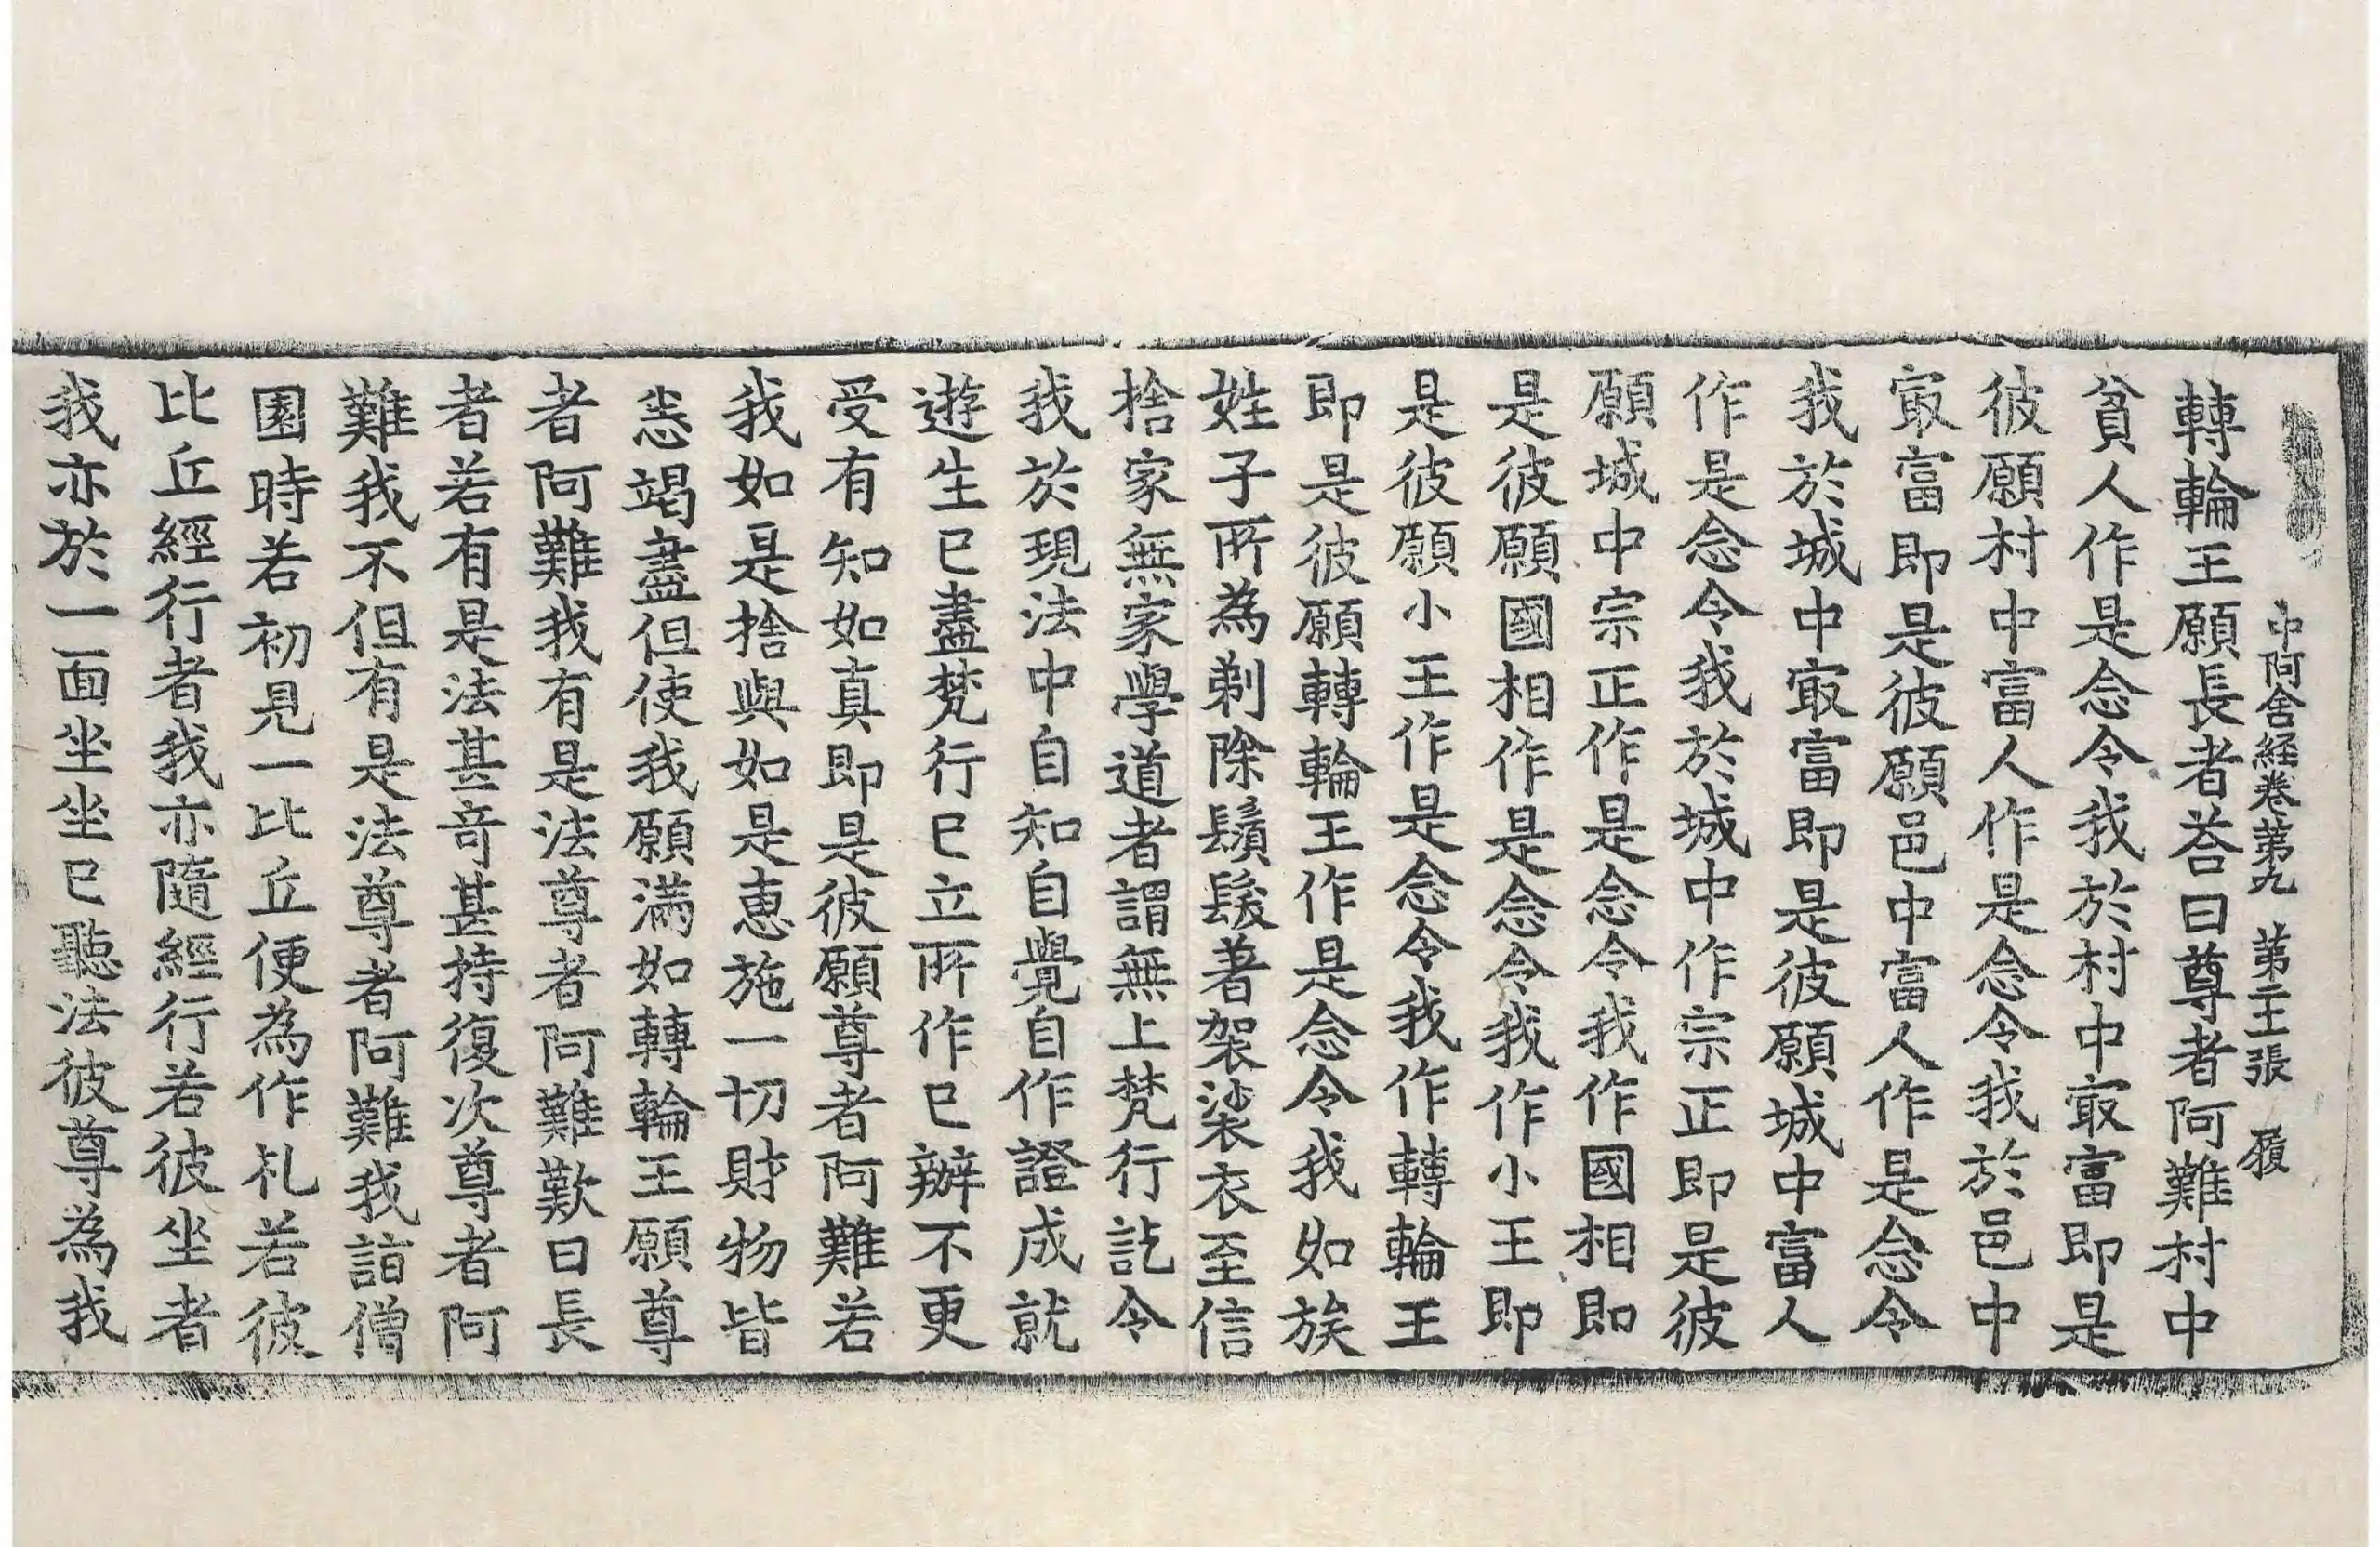 中阿含経卷第九　第二王張　履
轉輪王願長者荅曰尊者阿難村中
貧人作是念令我於村中㝡富即是
彼願村中富人作是念令我於邑中
㝡富即是彼願邑中富人作是念令
我於城中㝡富即是彼願城中富人
作是念令我於城中作宗正即是彼
願城中宗正作是念令我作國相即
是彼願國相作是念令我作小王即
是彼願小王作是念令我作轉輪王
即是彼願轉輪王作是念令我如族
姓子所為剃除鬚髮著袈裟衣至信
捨家無家學道者謂無上梵行訖令
我於現法中自知自覺自作證成就
遊生已盡梵行已立所作已辦不更
受有知如真即是彼願尊者阿難若
我如是捨與如是惠施一切財物皆
悉竭盡但使我願滿如轉輪王願尊
者阿難我有是法尊者阿難歎曰長
者若有是法甚奇甚持復次尊者阿
難我不但有是法尊者阿難我詣僧
園時若初見一比丘便為作礼若彼
比丘經行者我亦隨經行若彼坐者
我亦於一面坐坐已聽法彼尊為我